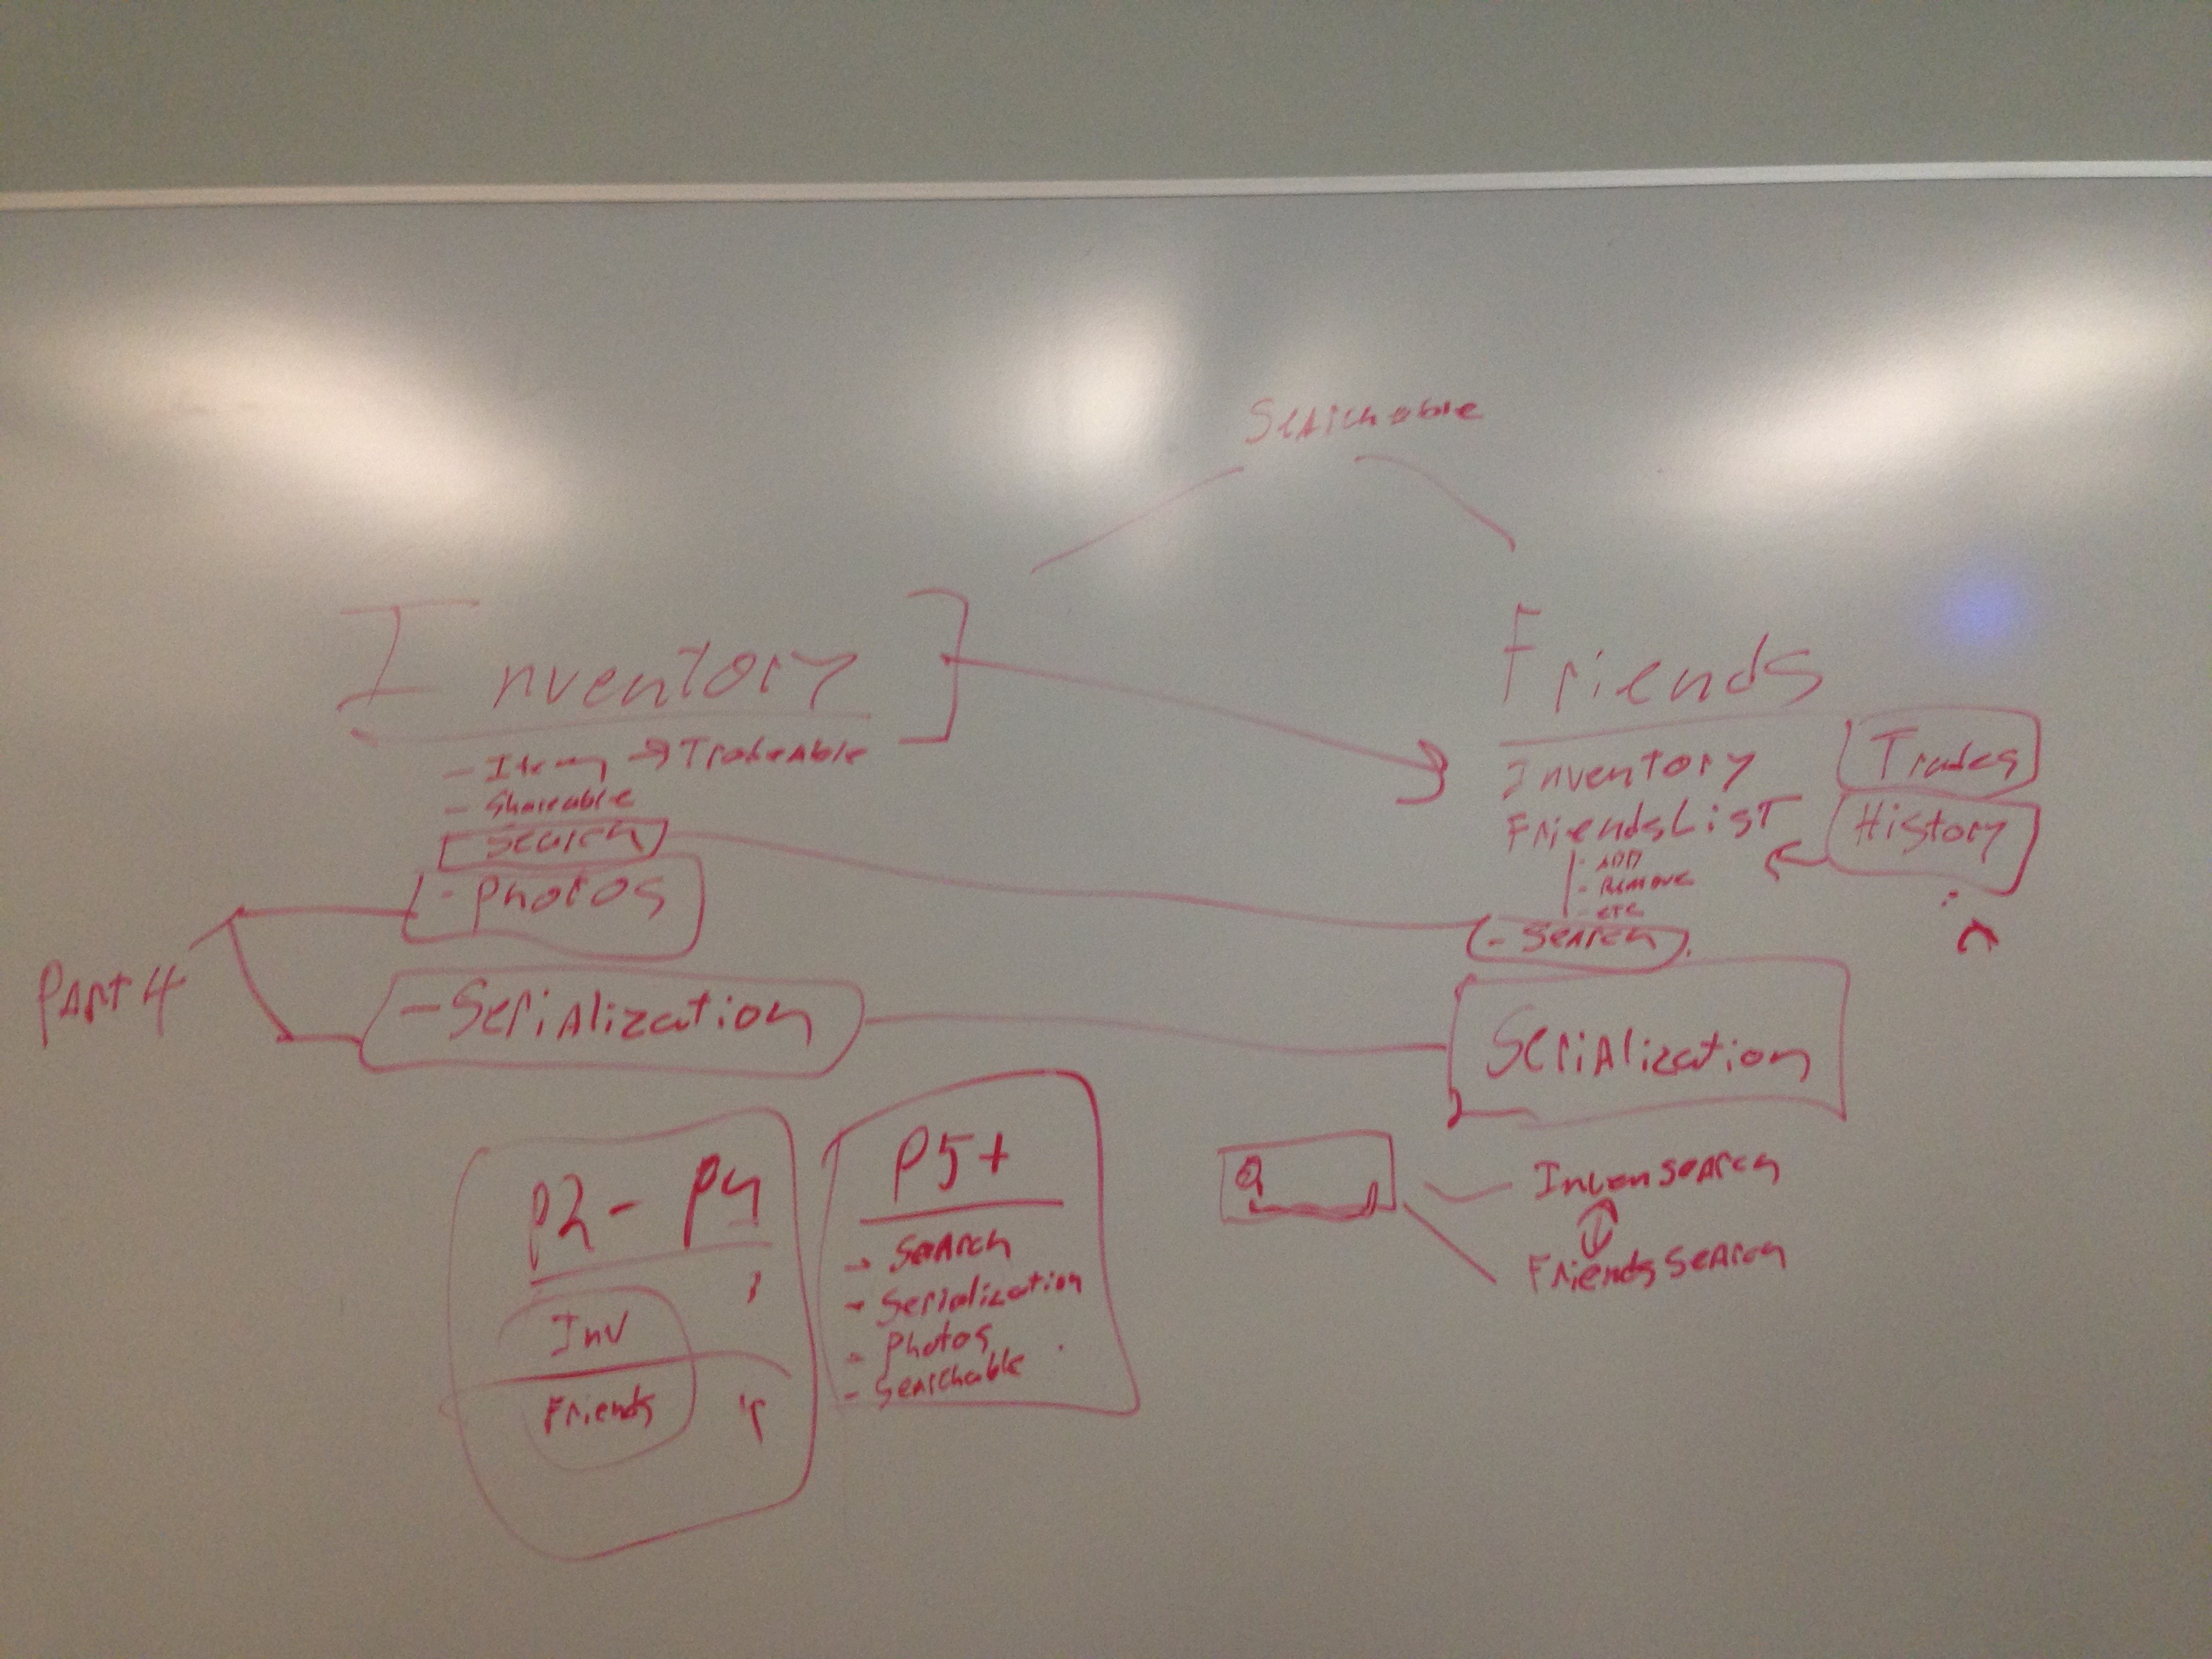 Searchable
Inventory
- Item → Tradeable
- Shareable
Search
- Photos
- Serialization
Part 4
Friends
Inventory
FriendsList
- ADD
- Remove
- etc
- Search
Trades
History
Serialization
P2 - P4
Inv
Friends
P5+
- Search
- Serialization
- Photos
- Searchable
InvenSearch
FriendsSearch